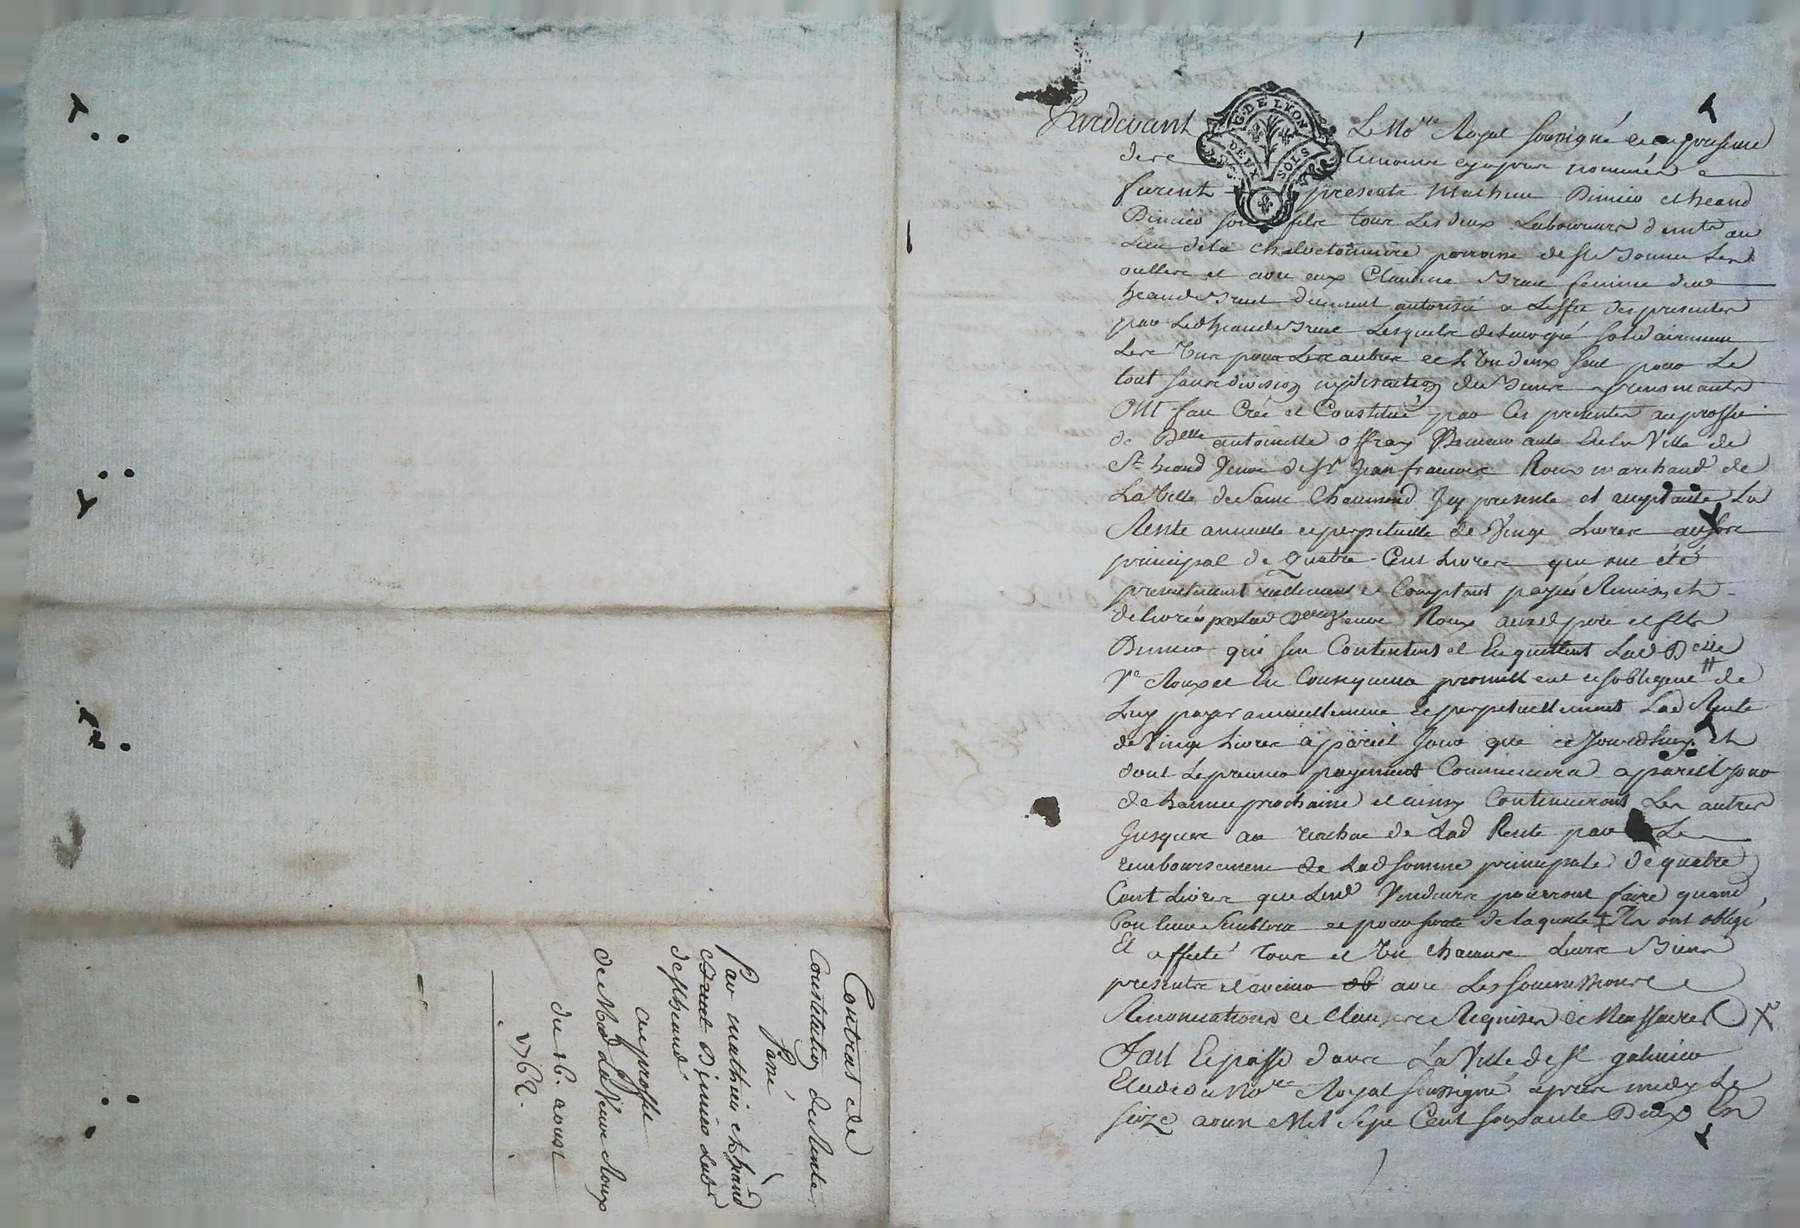 Pardevant Le No.re Royal soussigné et en presence
G. DE LYON
DEUX SOLS
des temoins cy apres nommés
furent presents Mathieu Dimier et heand
Dimier son filx tous Les deux Laboureurs demts au
Lieu dela parroisse de st Bonnet Les
oulles et avec eux Claudine femme dud
heande duement autorisée a Leffet des presentes
par Led heande Lesquels de Leur gré solidairement
Les Uns pour Les autres et L'Un deux seul pour Le
tout sans division ny discution
Ont fait Créé et Constitué par Ces presentes au proffit
de Delle antoinette offray Dela Ville de
St heand Veuve de Sr Jean francois Roux marchand de
La Ville de Saint Chaumond Icy presente et acceptante La
Rente annuelle et perpetuelle de Vingt Livres au sort
principal de Quatre Cent Livres qui ont été
presentement reellement et Comptant payés Remis et
delivrés par Lad Delle Veuve Roux auxd pere et fils
Dimier qui sen Contentent et En quittent Lad Delle
Ve Roux et En Consequence promettent et sobligent de
Luy payer annuellement et perpetuellement Lad Rente
de Vingt Livres a pareil Jour que cejourdhuy et
dont Le premier payement Commencera a pareil Jour
de Lannee prochaine et ainsy Continueront Les autres
Jusques au rachac de Lad Rente par Le
remboursement de Lad somme principale de quatre
Cent Livres que Lesd Vendeurs pourront faire quand
bon Leur semblera et pour sureté de laquelle + Ils ont obligé
Et affecté tous et Un chacuns Leurs Biens
presents et avenir avec Les soumissions
Renonciations et Clauses Requises et Necessaires X
Fait Et passé dans La Ville de St galmier
Etude du No.re Royal soussigné apres midy Le
seize aoust Mil Sept Cent soixante Deux En
Contrat de
Constitution de Rente
Passé
Par mathieu et heand
Dimier Labrs
de st heand
au proffit
de Md La Veuve Roux
du 16. aoust
1762.